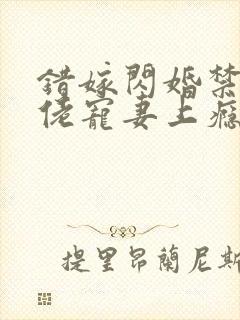 錯嫁閃婚禁
佬寵妻上癮
提里昂蘭尼斯